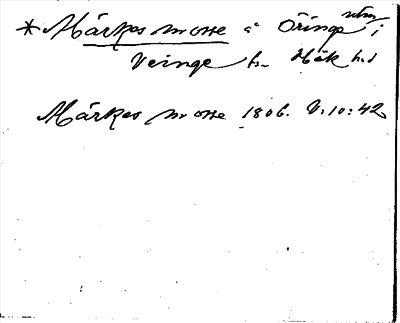 * Märkes mosse å Öringe utm i
Veinge sn Hök hd
Märkes mosse 1806. V: 10: 42